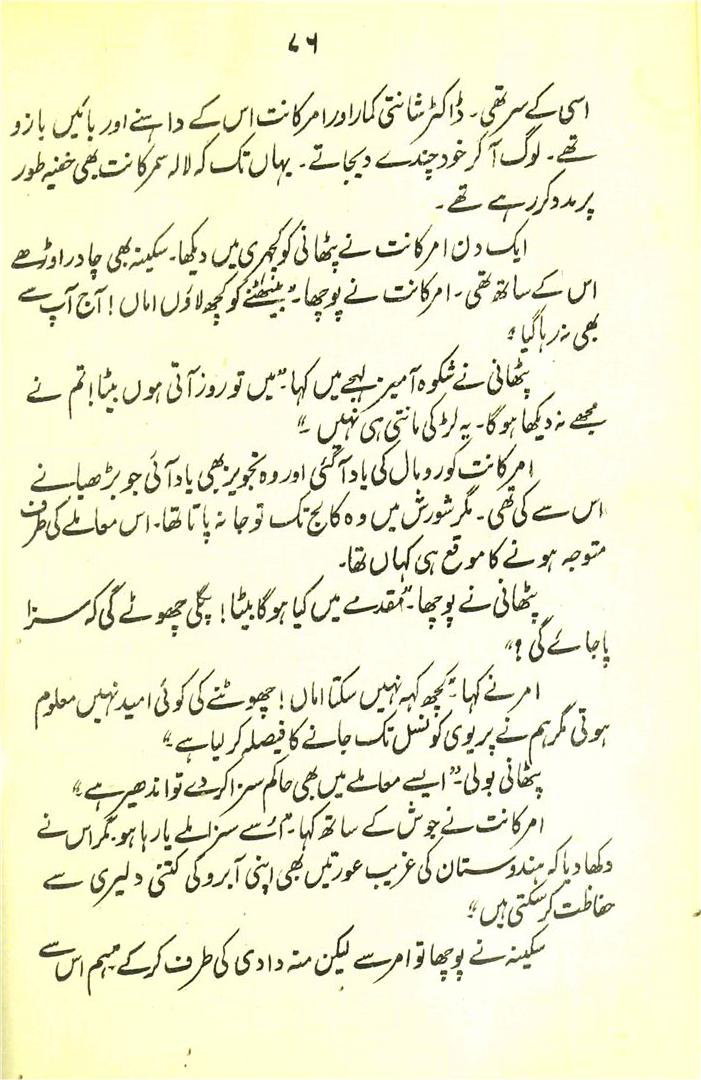 ۷۶
اسی کے سر تھی۔ ڈاکٹر شانتی کمار اور امر کانت اس کے داہنے اور بائیں بازو
تھے۔ لوگ آ کر خود چندے دیجاتے۔ یہاں تک کہ لالہ سمر کانت بھی خفیہ طور
پر مدد کر رہے تھے۔
ایک دن امر کانت نے پٹھانی کو کچہری میں دیکھا۔ سکینہ بھی چادر اوڑھے
اس کے ساتھ تھی۔ امر کانت نے پوچھا۔ "بیٹھنے کو کچھ لاؤں اماں! آج آپ سے
بھی نہ رہا گیا"
پٹھانی نے شکوہ آمیز لہجے میں کہا۔ "میں تو روز آتی ہوں بیٹا! تم نے
مجھے نہ دیکھا ہوگا۔ یہ لڑکی مانتی ہی نہیں۔"
امر کانت کو رومال کی یاد آ گئی اور وہ تجویز بھی یاد آئی جو بڑھیا نے
اس سے کی تھی۔ مگر شورش میں وہ کالج تک تو جا نہ پاتا تھا۔ اس معاملے کی طرف
متوجہ ہونے کا موقع ہی کہاں تھا۔
پٹھانی نے پوچھا۔ "مقدمے میں کیا ہوگا بیٹا! پگلی چھوٹے گی کہ سزا
پا جائے گی؟"
امر نے کہا۔ "کچھ کہہ نہیں سکتا اماں! چھوٹنے کی کوئی امید نہیں معلوم
ہوتی مگر ہم نے پریوی کونسل تک جانے کا فیصلہ کر لیا ہے"
پٹھانی بولی۔ "ایسے معاملے میں بھی حاکم سزا کر دے تو اندھیر ہے"
امر کانت نے جوش کے ساتھ کہا۔ "اُسے سزا ملے یا رہا ہو۔ مگر اس نے
دکھا دیا کہ ہندوستان کی غریب عورتیں بھی اپنی آبرو کی کتنی دلیری سے
حفاظت کر سکتی ہیں"
سکینہ نے پوچھا تو امر سے لیکن منہ دادی کی طرف کر کے "ہم اس سے